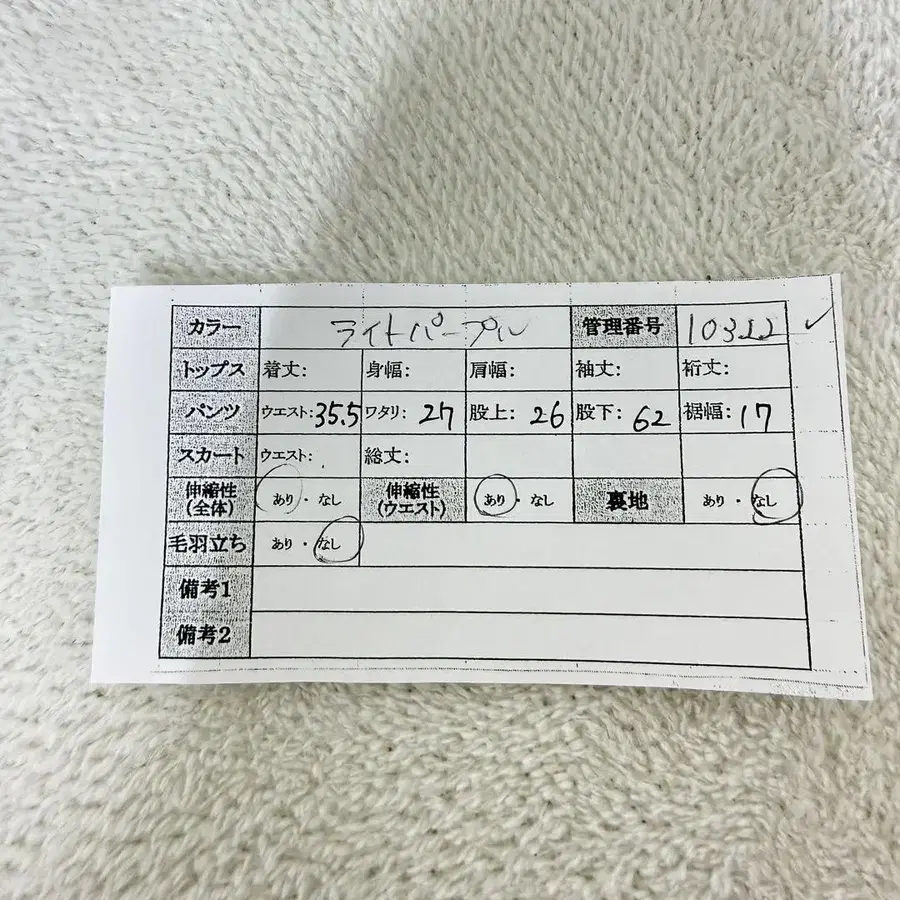 カラー ライトパープル 管理番号 10322 ✓
トップス 着丈: 身幅: 肩幅: 袖丈: 裄丈:
パンツ ウエスト:35.5 ワタリ: 27 股上: 26 股下: 62 裾幅: 17
スカート ウエスト: 総丈:
伸縮性(全体) あり・なし 伸縮性(ウエスト) あり・なし 裏地 あり・なし
毛羽立ち あり・なし
備考1
備考2